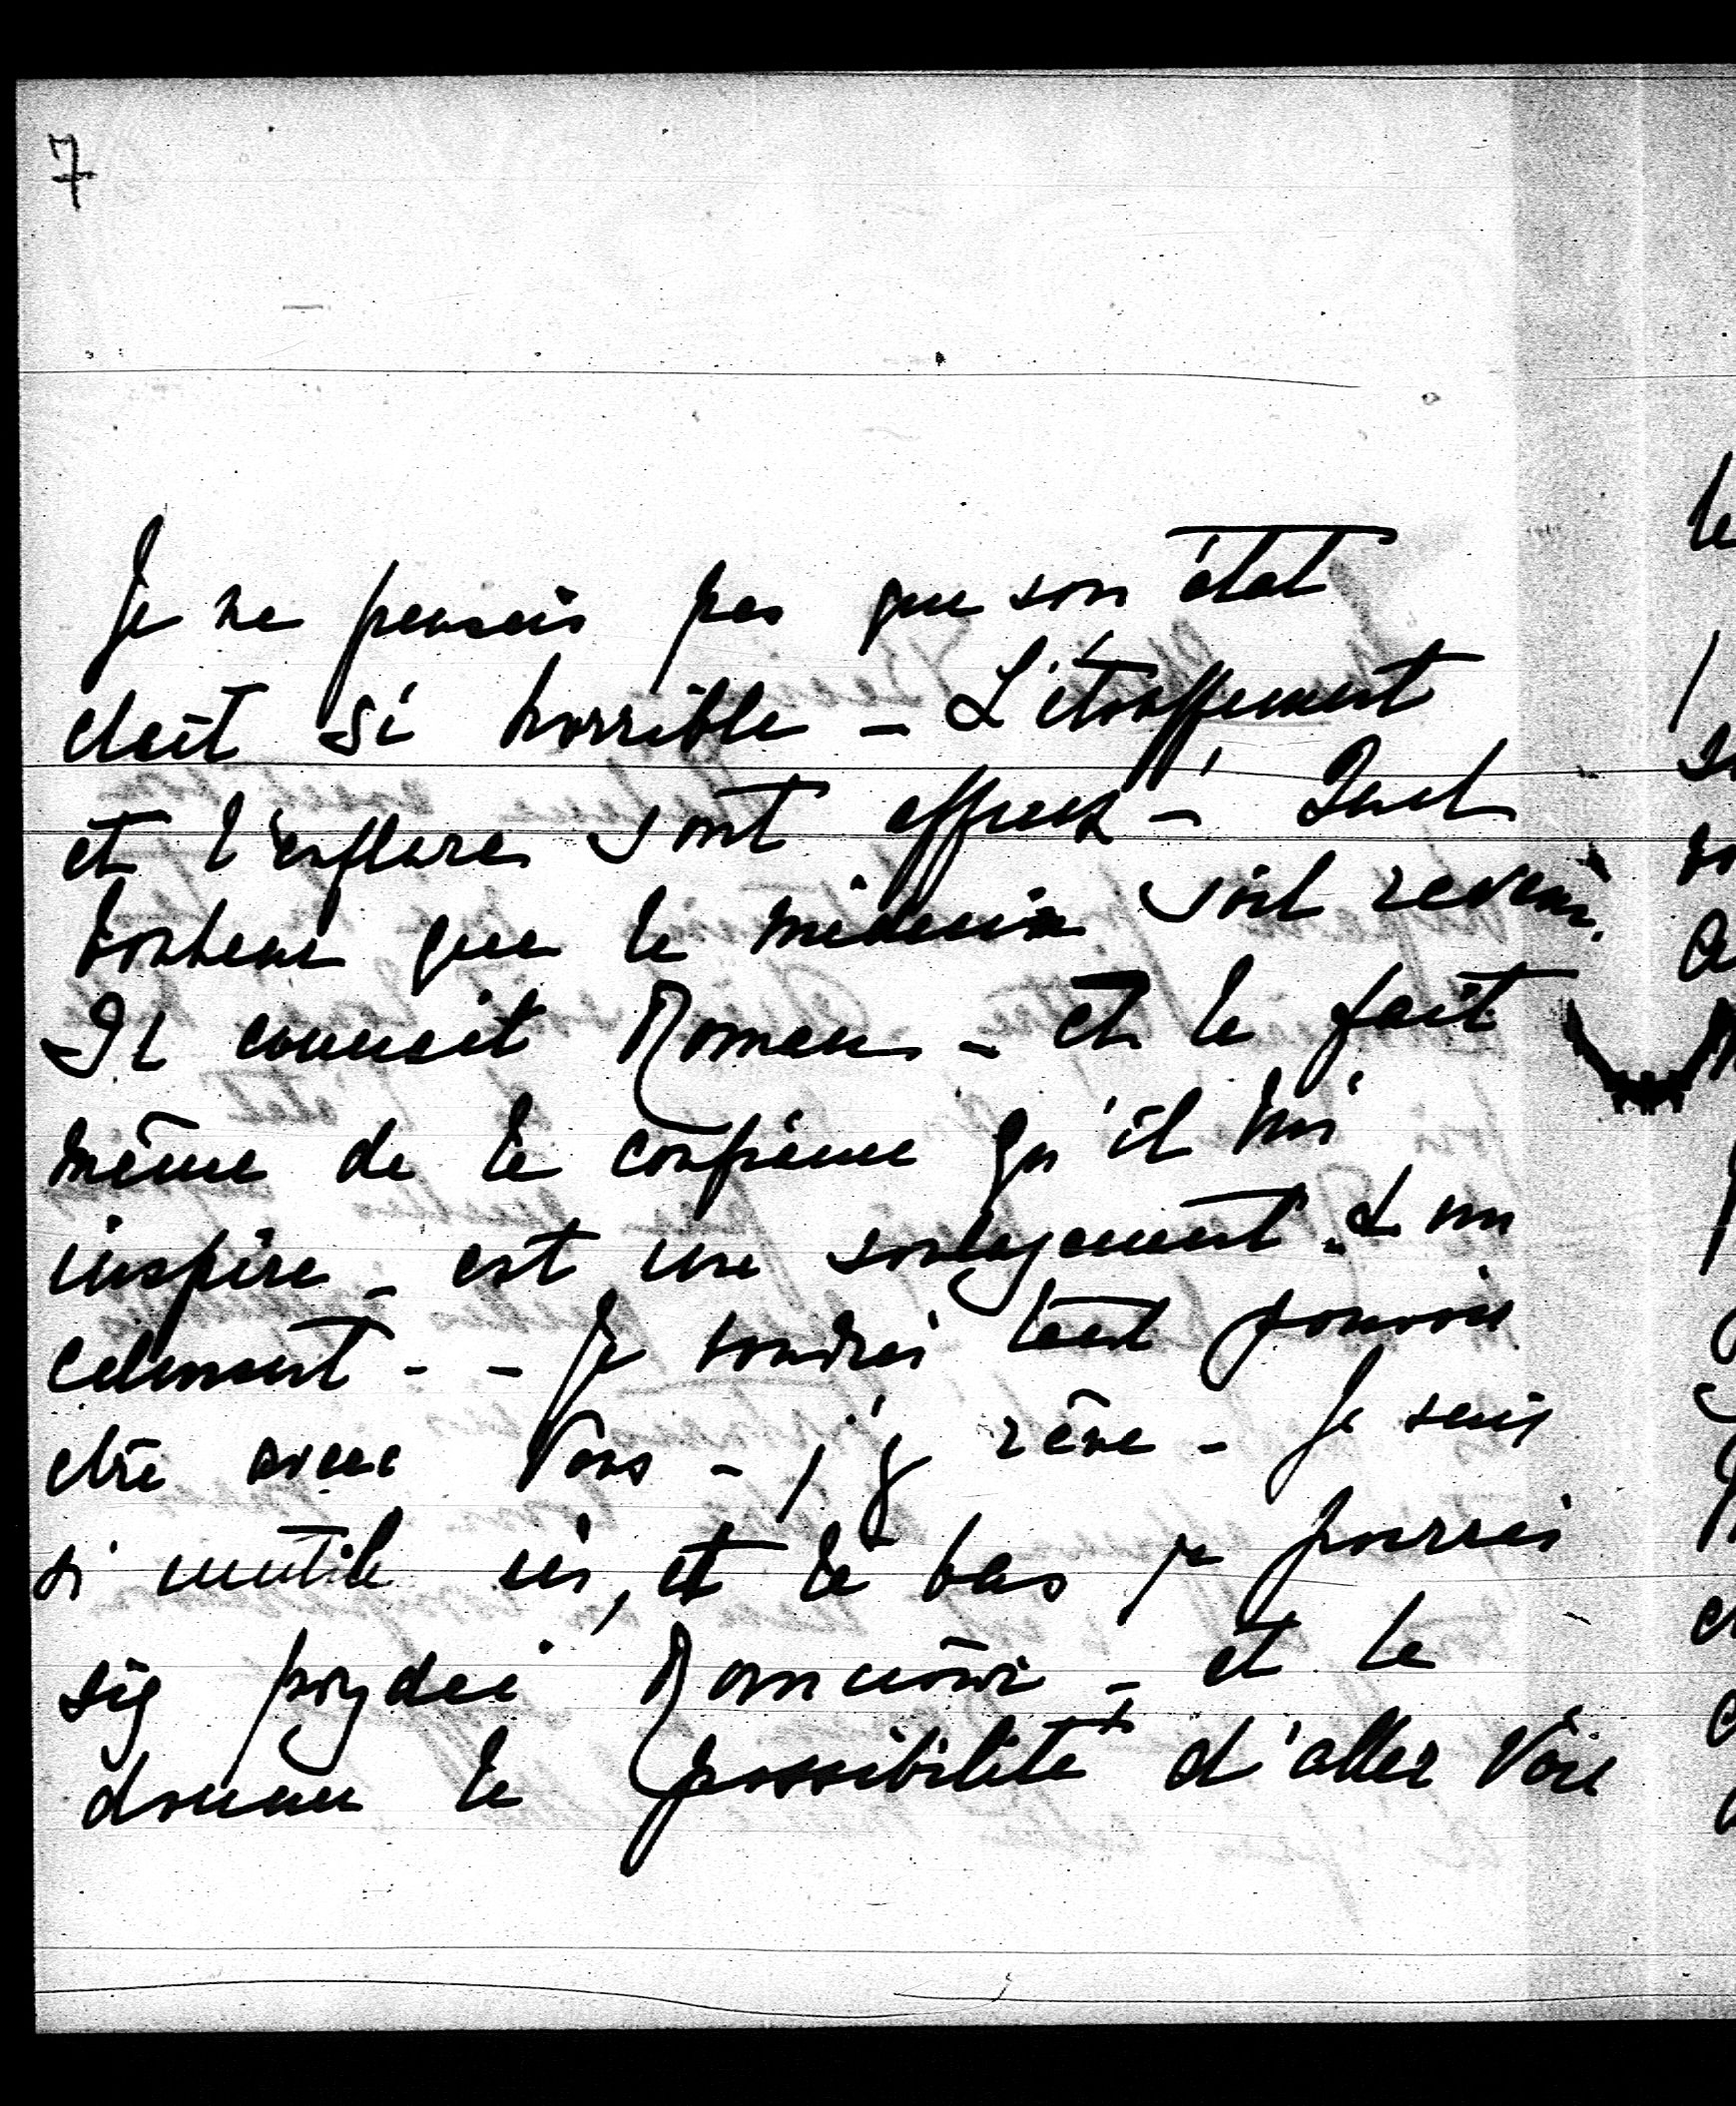 7
Je ne pensais pas que son état
était si horrible – L'étouffement
et l'enflure sont affreux – Quel
bonheur que le médecin soit revenu.
Il connait Roman – et le fait
même de la confiance qu'il lui
inspire – est un soulagement & un
calmant – – Je voudrais tant pouvoir
être avec Vous – j'y rêve – Je suis
si inutile ici, et là bas je pourrai
się przydać Romciowi – et le
donner la possibilité d'aller Voir